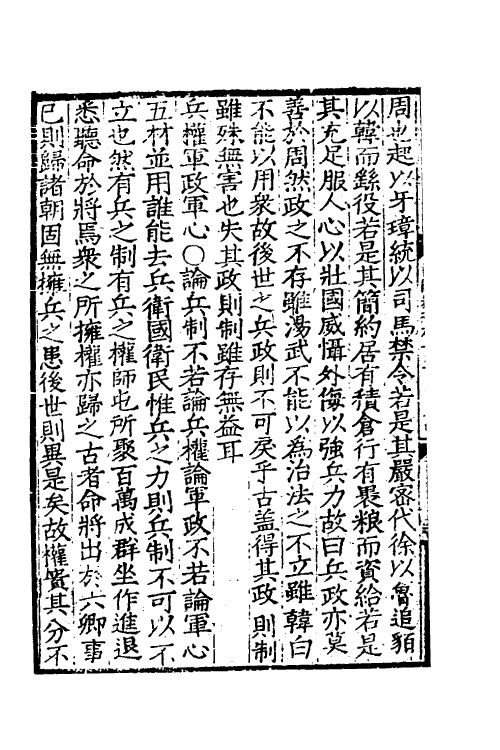 周也起以牙璋統以司馬禁令若是其嚴宻代徐以魯追貊
以韓而繇役若是其簡約居有積倉行有褁粮而資給若是
其充足服人心以壯國威懾外侮以強兵力故曰兵政亦莫
善於周然政之不存雖湯武不能以為治法之不立雖韓白
不能以用衆故後世之兵政則不可戾乎古盖得其政則制
雖殊無害也失其政則制雖存無益耳
兵權軍政軍心〇論兵制不若論兵權論軍政不若論軍心
五材並用誰能去兵衛國衛民惟兵之力則兵制不可以不
立也然有兵之制有兵之權師屯所聚百萬成群坐作進退
悉聽命於將焉衆之所擁權亦歸之古者命將出於六卿事
已則歸諸朝固無擁兵之患後世則異是矣故權貴其分不